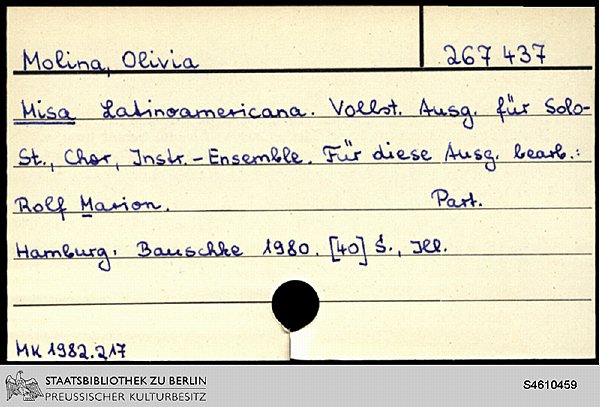 Molina, Olivia 267 437
Misa Latinoamericana. Vollst. Ausg. für Solo-
St., Chor, Instr.-Ensemble. Für diese Ausg. bearb.:
Rolf Marion. Part.
Hamburg: Bauschke 1980. [40] S., Ill.
MK 1982.217
STAATSBIBLIOTHEK ZU BERLIN
PREUSSISCHER KULTURBESITZ
S4610459